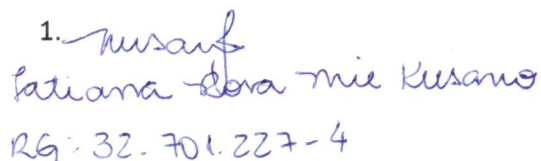 1.
Tatiana Dora Mie Kusano
RG: 32.701.227-4